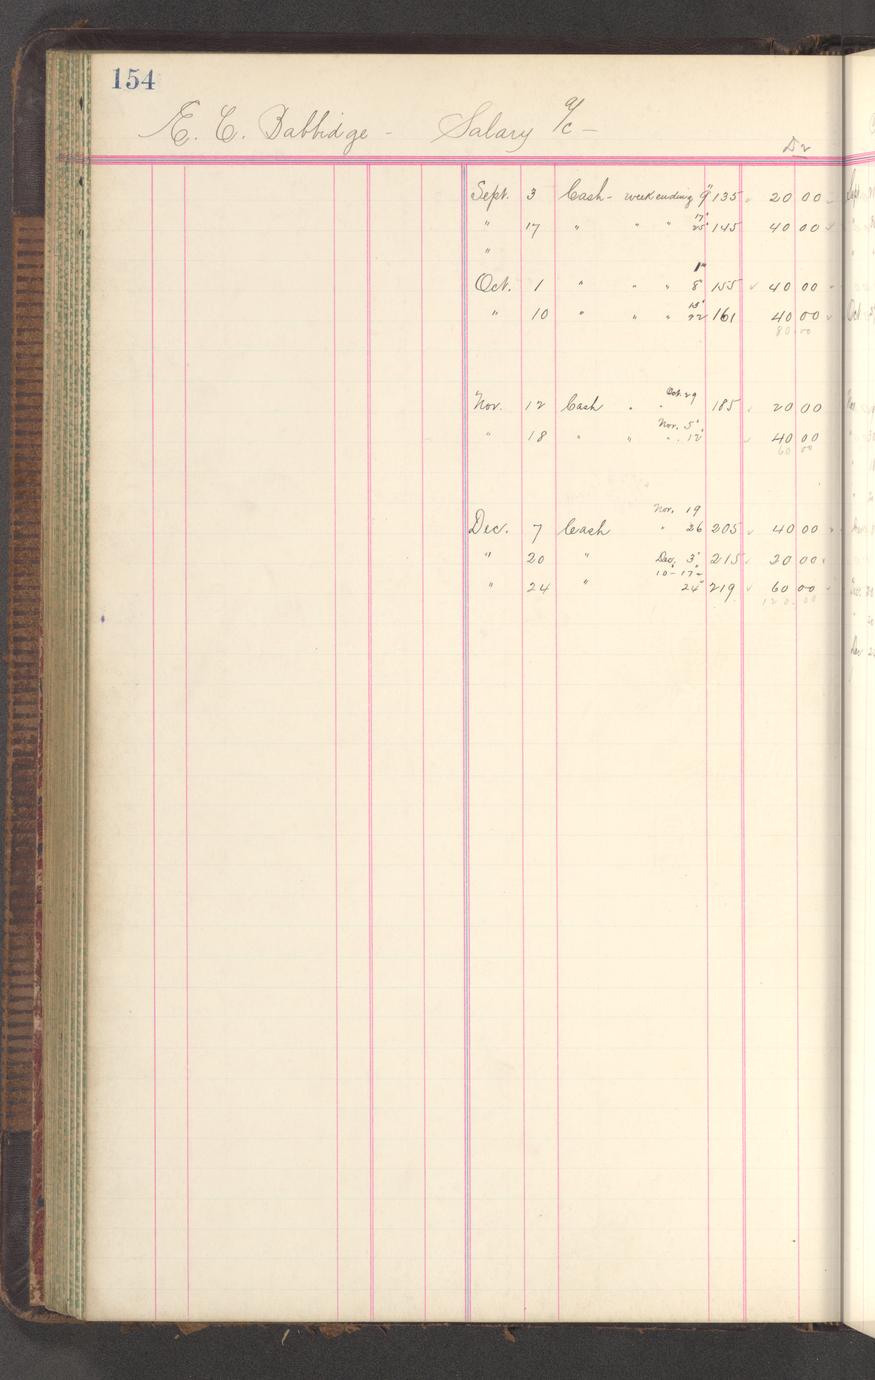 154
E. C. Babbidge - Salary a/c -
Dr
Sept. 3 Cash - week ending 9" 135 20 00
" 17 " " " 17" 25" 145 40 00
"
Oct. 1 " " " 1" 8" 155 40 00
" 10 " " " 15" 22 161 40 00
80 00
Nov. 12 Cash " " Oct. 29 185 20 00
" 18 " " Nov. 5" " 12 40 00
60 00
Dec. 7 Cash Nov. 19 " 26 205 40 00
" 20 " Dec. 3" 215 20 00
" 24 " 10" 17" 24" 219 60 00
120 00